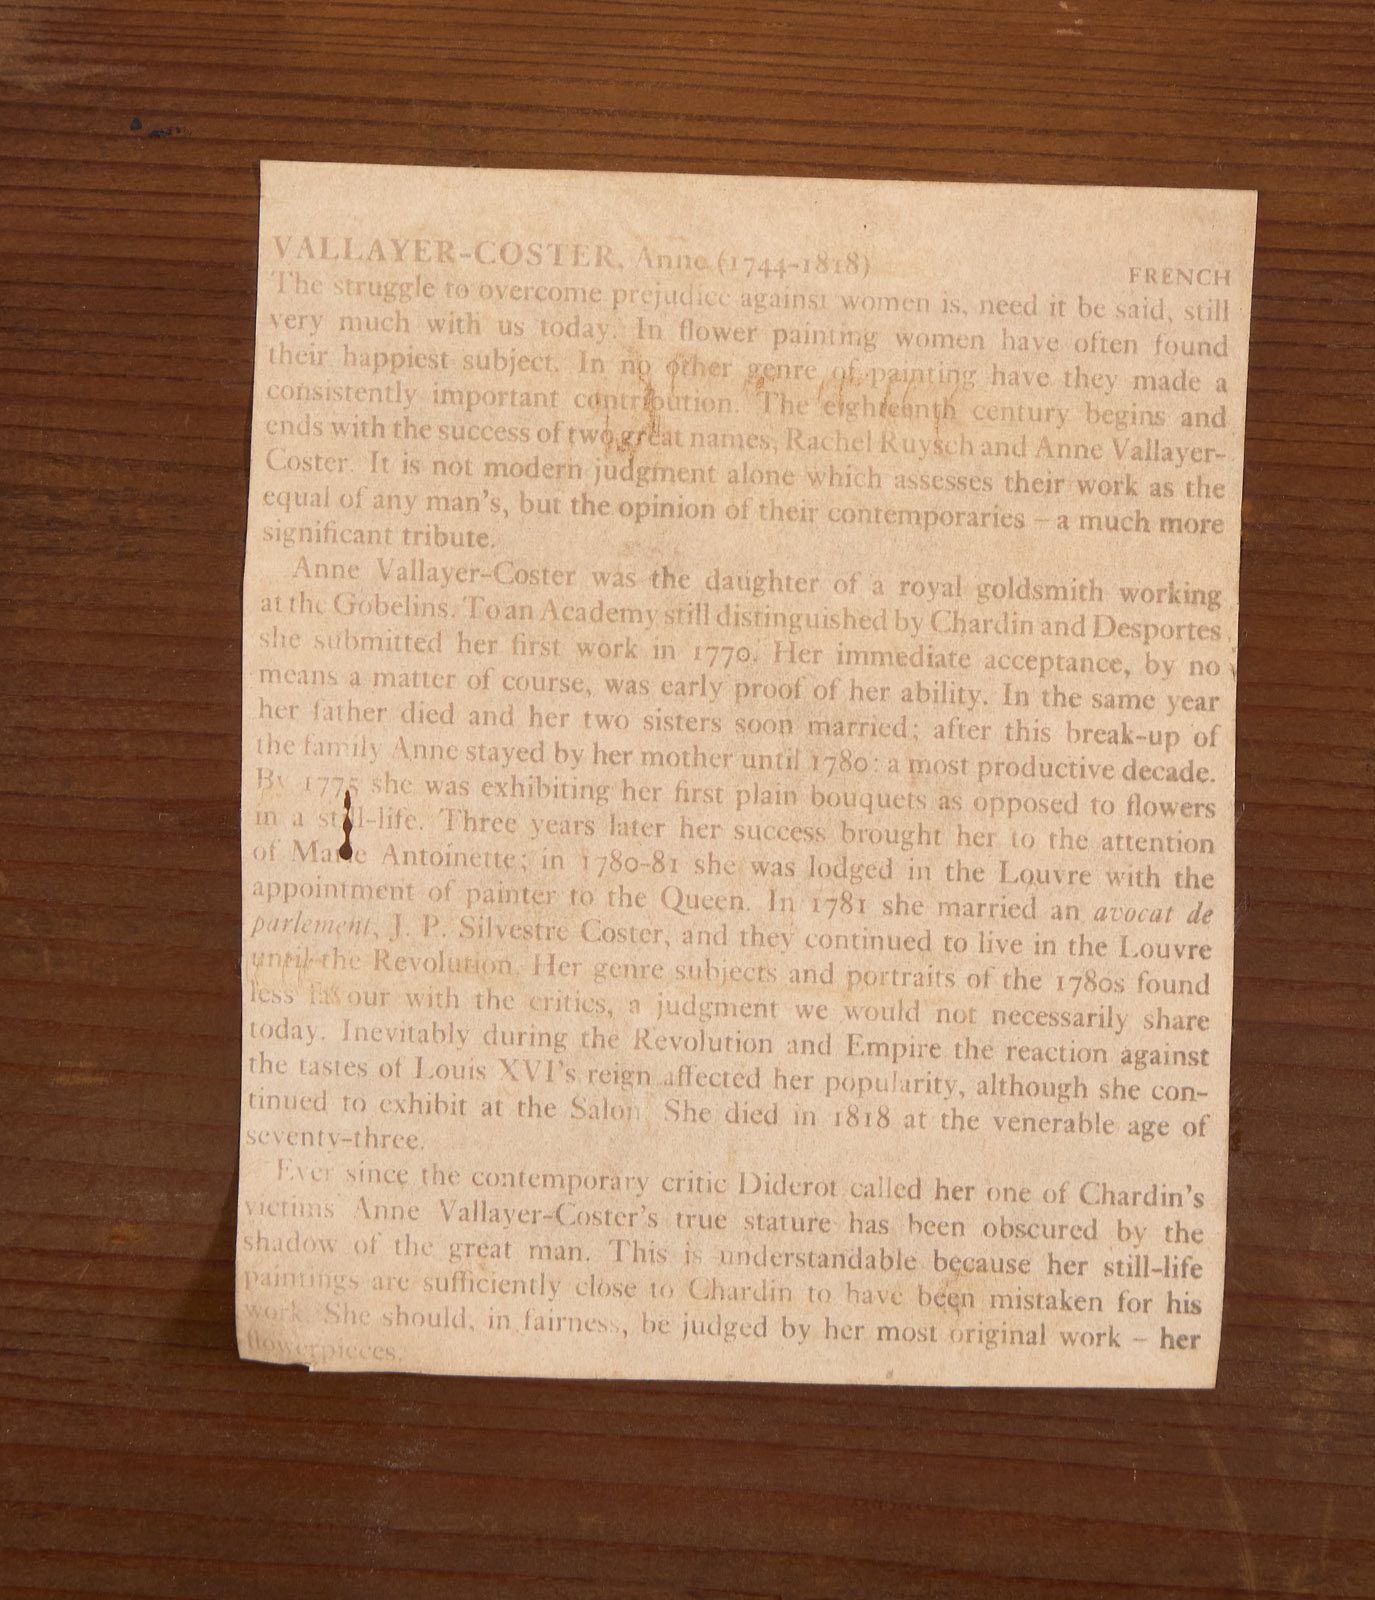 VALLAYER-COSTER, Anne (1744-1818)
FRENCH
The struggle to overcome prejudice against women is, need it be said, still
very much with us today. In flower painting women have often found
their happiest subject. In no other genre of painting have they made a
consistently important contribution. The eighteenth century begins and
ends with the success of two great names, Rachel Ruysch and Anne Vallayer-
Coster. It is not modern judgment alone which assesses their work as the
equal of any man's, but the opinion of their contemporaries – a much more
significant tribute.
Anne Vallayer-Coster was the daughter of a royal goldsmith working
at the Gobelins. To an Academy still distinguished by Chardin and Desportes
she submitted her first work in 1770. Her immediate acceptance, by no
means a matter of course, was early proof of her ability. In the same year
her father died and her two sisters soon married; after this break-up of
the family Anne stayed by her mother until 1780: a most productive decade.
By 1775 she was exhibiting her first plain bouquets as opposed to flowers
in a still-life. Three years later her success brought her to the attention
of Marie Antoinette; in 1780-81 she was lodged in the Louvre with the
appointment of painter to the Queen. In 1781 she married an avocat de
parlement, J. P. Silvestre Coster, and they continued to live in the Louvre
until the Revolution. Her genre subjects and portraits of the 1780s found
less favour with the critics, a judgment we would not necessarily share
today. Inevitably during the Revolution and Empire the reaction against
the tastes of Louis XVI's reign affected her popularity, although she con-
tinued to exhibit at the Salon. She died in 1818 at the venerable age of
seventy-three.
Ever since the contemporary critic Diderot called her one of Chardin's
victims Anne Vallayer-Coster's true stature has been obscured by the
shadow of the great man. This is understandable because her still-life
paintings are sufficiently close to Chardin to have been mistaken for his
work. She should, in fairness, be judged by her most original work – her
flowerpieces.